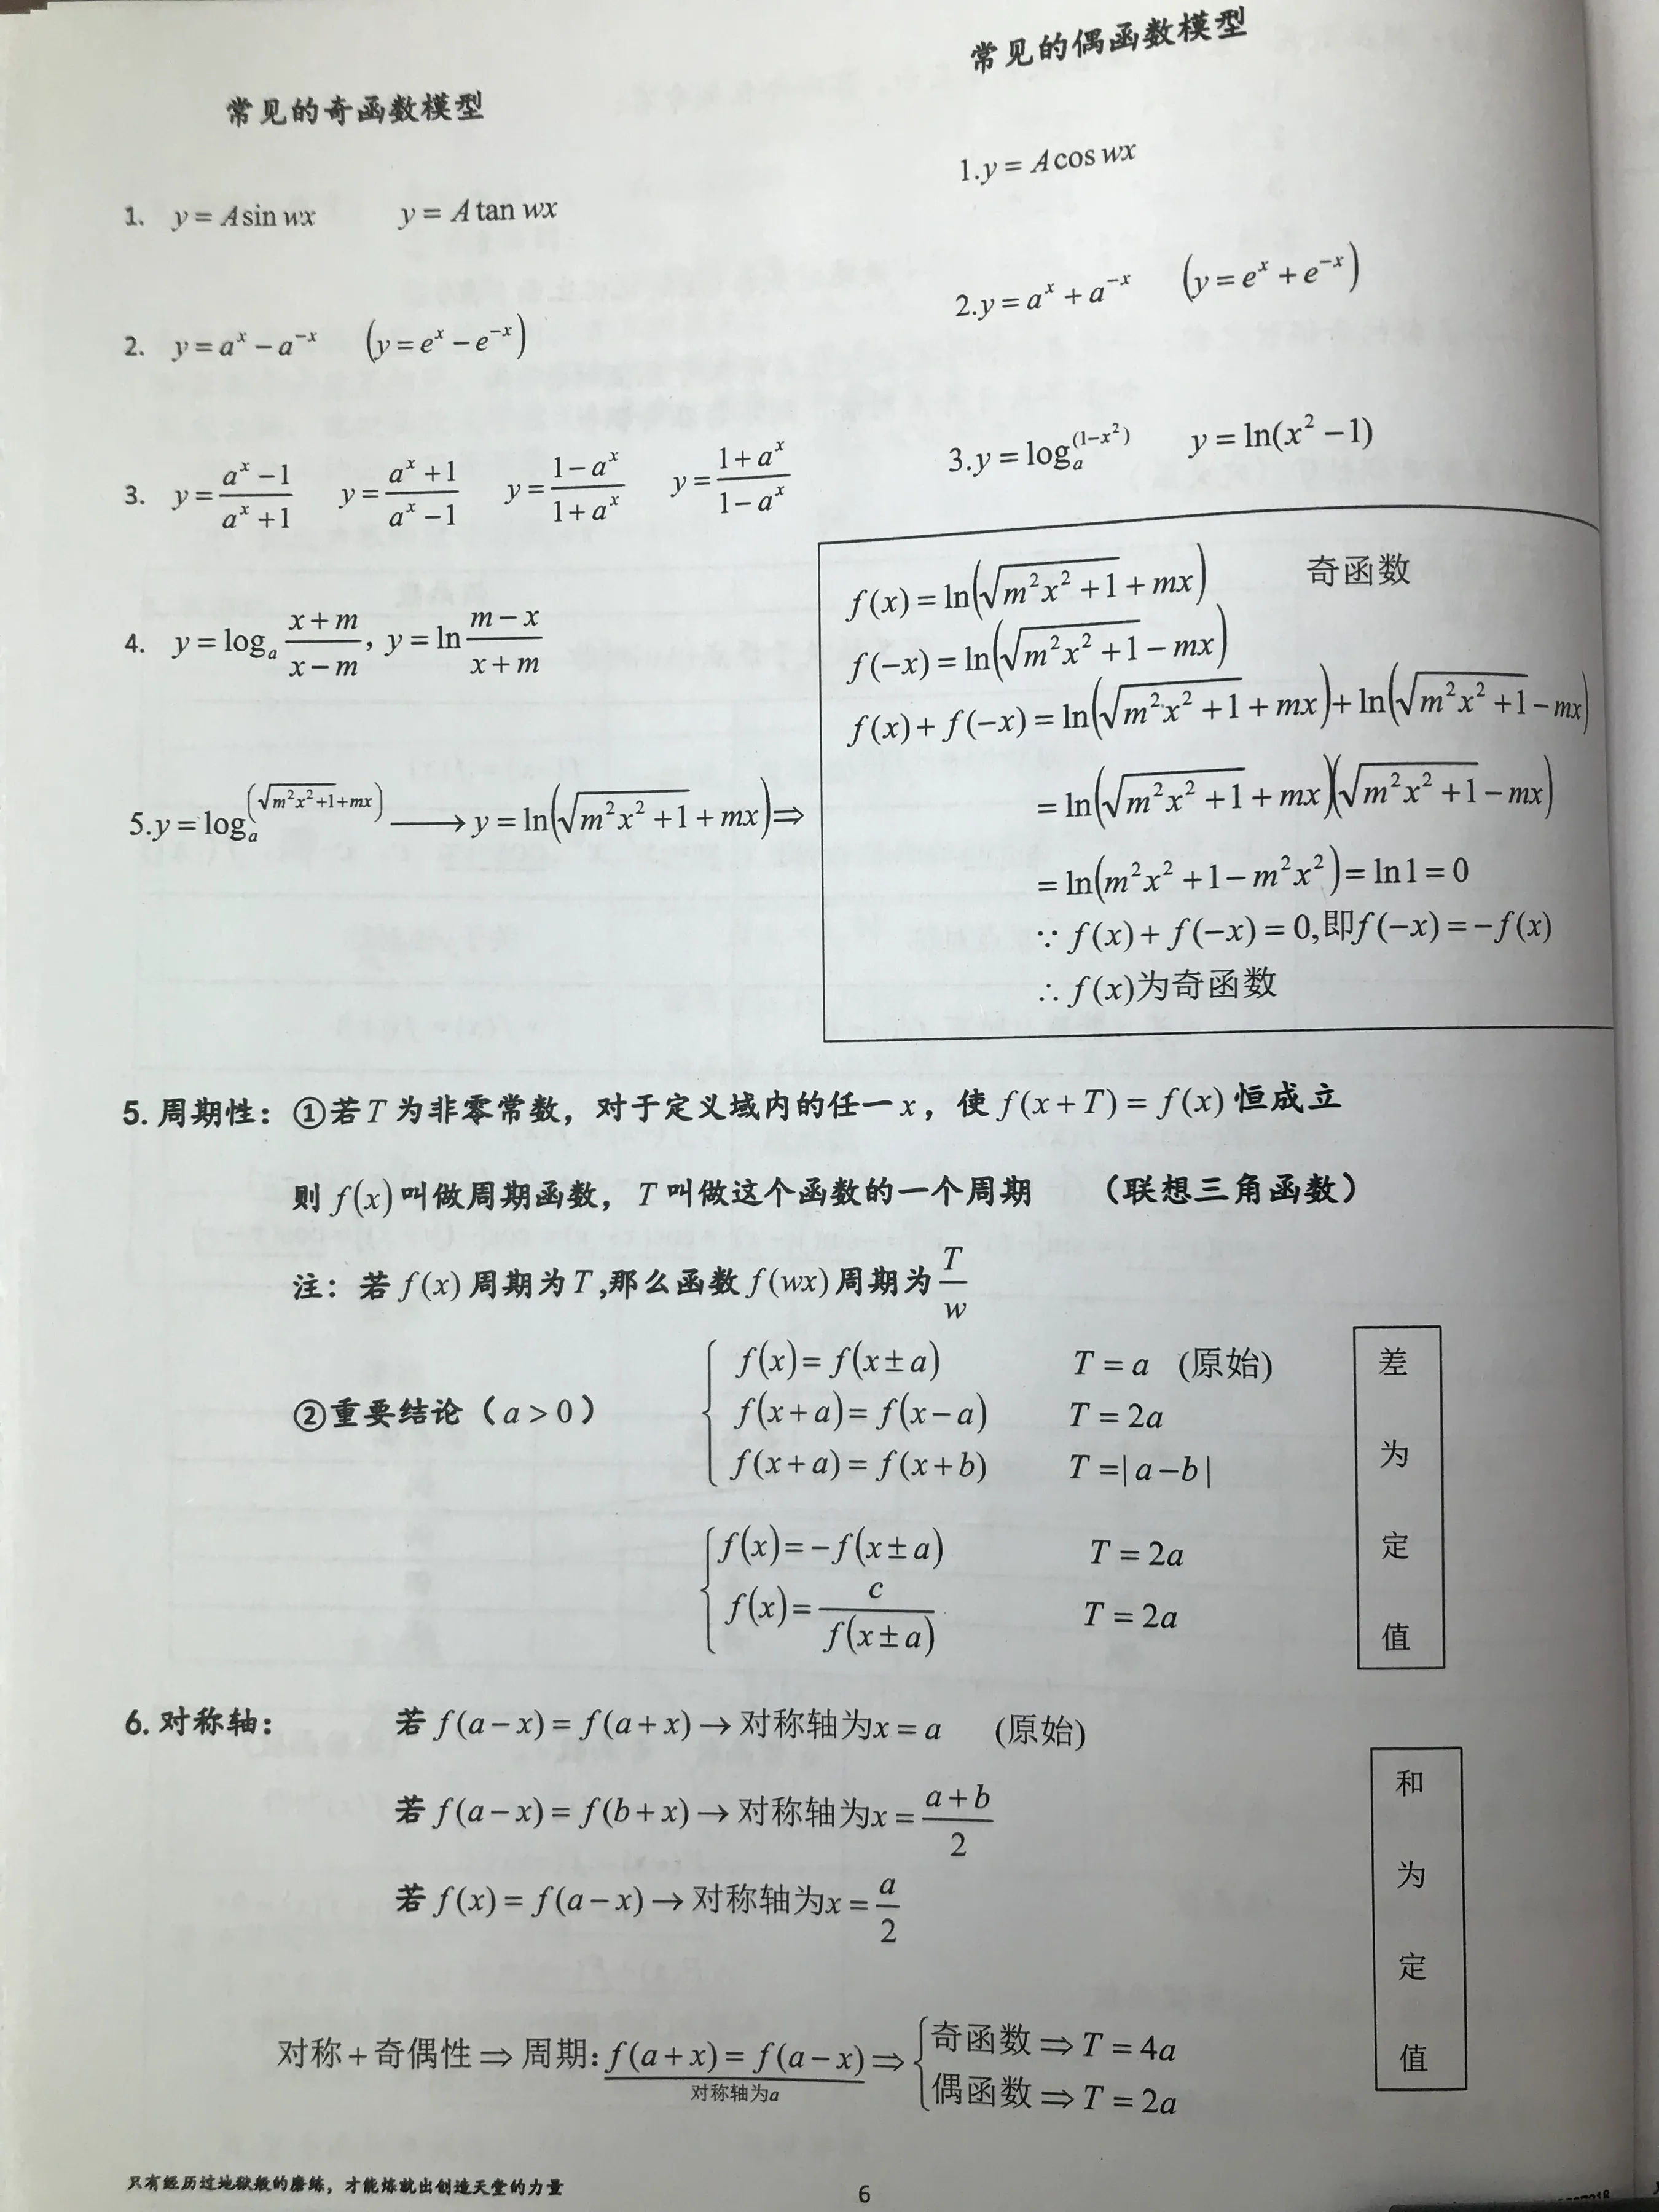 常见的奇函数模型
1. y = A sin wx   y = A tan wx
2. y = a^x − a^{−x}   (y = e^x − e^{−x})
3. y = (a^x − 1)/(a^x + 1)   y = (a^x + 1)/(a^x − 1)   y = (1 − a^x)/(1 + a^x)   y = (1 + a^x)/(1 − a^x)
4. y = log_a (x + m)/(x − m), y = ln (m − x)/(x + m)
5. y = log_a^{(√(m²x² + 1) + mx)} ⟶ y = ln(√(m²x² + 1) + mx) ⇒
常见的偶函数模型
1. y = A cos wx
2. y = a^x + a^{−x}   (y = e^x + e^{−x})
3. y = log_a^{(1−x²)}   y = ln(x² − 1)
f(x) = ln(√(m²x² + 1) + mx)   奇函数
f(−x) = ln(√(m²x² + 1) − mx)
f(x) + f(−x) = ln(√(m²x² + 1) + mx) + ln(√(m²x² + 1) − mx)
= ln(√(m²x² + 1) + mx)(√(m²x² + 1) − mx)
= ln(m²x² + 1 − m²x²) = ln 1 = 0
∵ f(x) + f(−x) = 0, 即f(−x) = −f(x)
∴ f(x)为奇函数
5. 周期性：①若T为非零常数，对于定义域内的任一x，使f(x + T) = f(x)恒成立
则f(x)叫做周期函数，T叫做这个函数的一个周期   （联想三角函数）
注：若f(x)周期为T,那么函数f(wx)周期为T/w
②重要结论（a > 0）
f(x) = f(x ± a)   T = a   (原始)
f(x + a) = f(x − a)   T = 2a
f(x + a) = f(x + b)   T =| a − b |
f(x) = −f(x ± a)   T = 2a
f(x) = c/f(x ± a)   T = 2a
差
为
定
值
6. 对称轴：   若f(a − x) = f(a + x) → 对称轴为x = a   (原始)
若f(a − x) = f(b + x) → 对称轴为x = (a + b)/2
若f(x) = f(a − x) → 对称轴为x = a/2
和
为
定
值
对称 + 奇偶性 ⇒ 周期: f(a + x) = f(a − x) ⇒ { 奇函数 ⇒ T = 4a
对称轴为a
偶函数 ⇒ T = 2a
只有经历过地狱般的磨练，才能炼就出创造天堂的力量
6